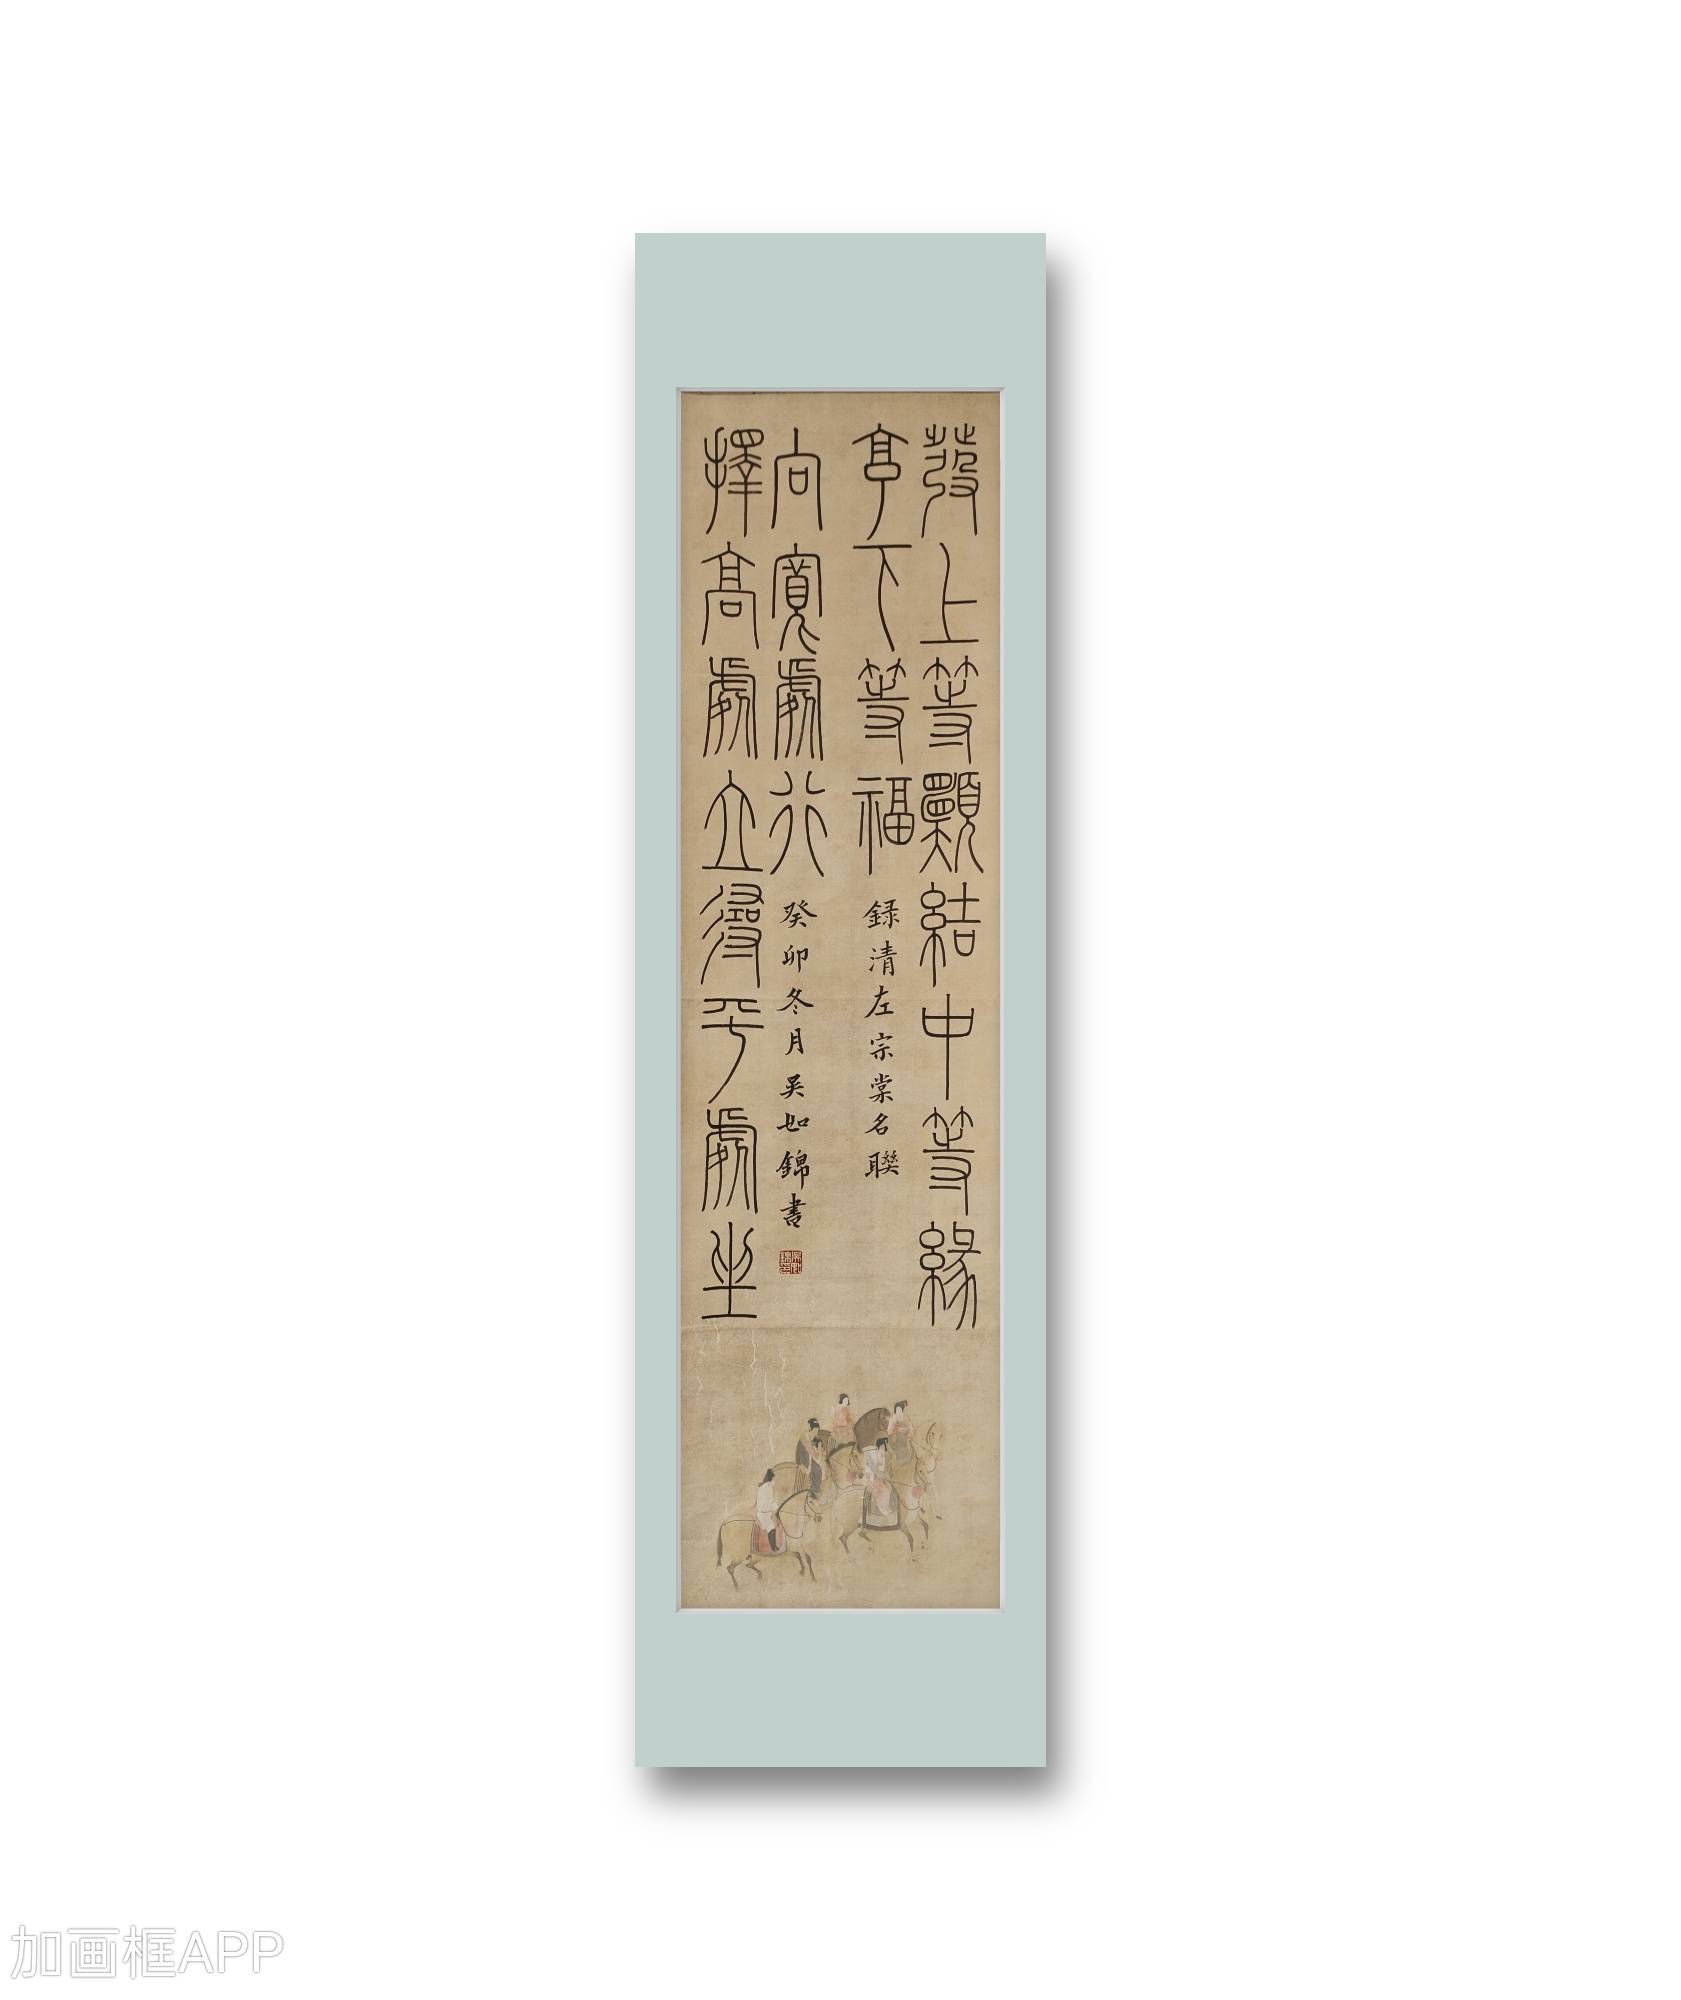 發上等願結中等緣
享下等福
録清左宗棠名聯
擇高處立尋平處坐
向寬處行
癸卯冬月吴如錦書
加画框APP